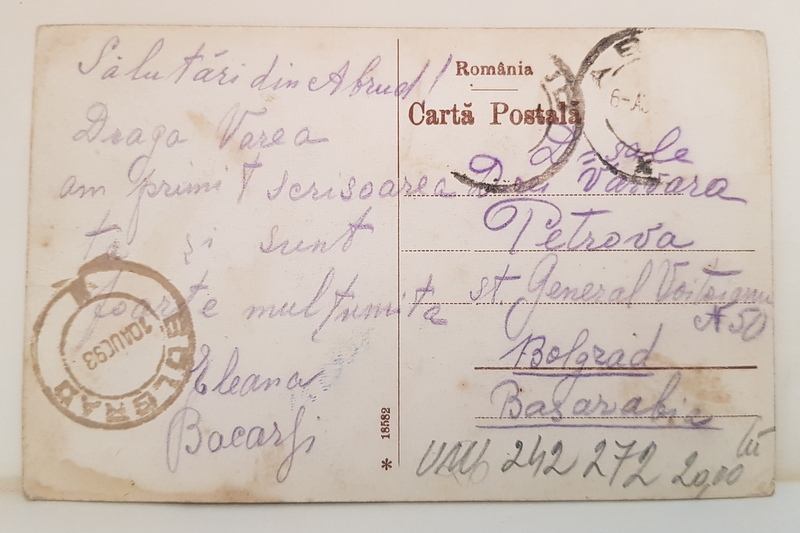 Salutări din Abrud!
Draga Varea
am primit scrisoarea
ta și sunt
foarte mulțumita
Eleana
Bacargi
România
Cartă Postală
D-sale
D-rei Varvara
Petrova
st. General Voitoianu
№ 50
Bolgrad
Basarabia
* 18582
BOLGRAD
10AUG93
6-A
242 272 20,00 lei